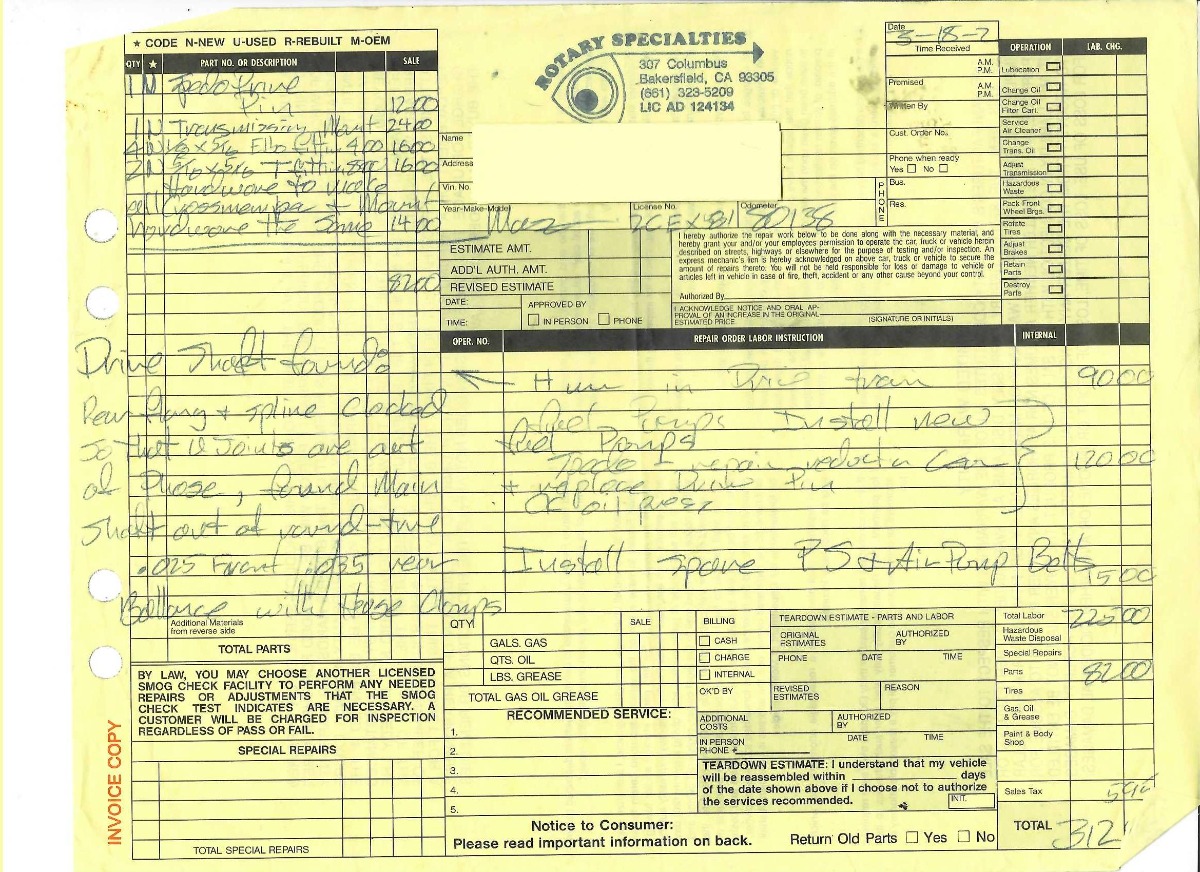 ★ CODE N-NEW U-USED R-REBUILT M-OEM
QTY ★ PART NO. OR DESCRIPTION SALE
1 N Drive
Pin 12 00
1 N Transmission Mount 24 00
4 N 16 00
2 N 16 00
Hardware to
Mount
the Same 14 00
82 00
ROTARY SPECIALTIES
307 Columbus
Bakersfield, CA 93305
(661) 323-5209
LIC AD 124134
Name
Address
Vin. No.
Year-Make-Model License No. Odometer
Maz 2CEX81 80138
ESTIMATE AMT.
ADD'L AUTH. AMT.
REVISED ESTIMATE
DATE: APPROVED BY
TIME: IN PERSON PHONE
Date
Time Received
A.M.
P.M.
Promised A.M.
P.M.
Written By
Cust. Order No.
Phone when ready
Yes No
PHONE
Bus.
Res.
I hereby authorize the repair work below to be done along with the necessary material, and
hereby grant your and/or your employees permission to operate the car, truck or vehicle herein
described on streets, highways or elsewhere for the purpose of testing and/or inspection. An
express mechanic's lien is hereby acknowledged on above car, truck or vehicle to secure the
amount of repairs thereto. You will not be held responsible for loss or damage to vehicle or
articles left in vehicle in case of fire, theft, accident or any other cause beyond your control.
Authorized By
I ACKNOWLEDGE NOTICE AND ORAL AP-
PROVAL OF AN INCREASE IN THE ORIGINAL
ESTIMATED PRICE. (SIGNATURE OR INITIALS)
OPERATION LAB. CHG.
Lubrication
Change Oil
Change Oil
Filter Cart.
Service
Air Cleaner
Change
Trans. Oil
Adjust
Transmission
Hazardous
Waste
Pack Front
Wheel Brgs.
Rotate
Tires
Adjust
Brakes
Retain
Parts
Destroy
Parts
OPER. NO. REPAIR ORDER LABOR INSTRUCTION INTERNAL
Hum in Drive train 90 00
Fuel Pumps Install new
fuel Pumps
repair 120 00
+ replace Drive Pin
oil press
Install spare PS & Air Pump Belts
15 00
Drive Shaft found:
Rear flang + spline clocked
So that U Joints are out
of Phase, found Main
Shaft out of round-true
.025 Front .035 rear
Ballance with House Clamps
Additional Materials
from reverse side
TOTAL PARTS
BY LAW, YOU MAY CHOOSE ANOTHER LICENSED
SMOG CHECK FACILITY TO PERFORM ANY NEEDED
REPAIRS OR ADJUSTMENTS THAT THE SMOG
CHECK TEST INDICATES ARE NECESSARY. A
CUSTOMER WILL BE CHARGED FOR INSPECTION
REGARDLESS OF PASS OR FAIL.
SPECIAL REPAIRS
TOTAL SPECIAL REPAIRS
INVOICE COPY
QTY SALE
GALS. GAS
QTS. OIL
LBS. GREASE
TOTAL GAS OIL GREASE
RECOMMENDED SERVICE:
1.
2.
3.
4.
5.
BILLING
CASH
CHARGE
INTERNAL
OK'D BY
TEARDOWN ESTIMATE - PARTS AND LABOR
ORIGINAL
ESTIMATES
AUTHORIZED
BY
PHONE DATE TIME
REVISED
ESTIMATES
REASON
ADDITIONAL
COSTS
AUTHORIZED
BY
IN PERSON
PHONE #
DATE TIME
TEARDOWN ESTIMATE: I understand that my vehicle
will be reassembled within days
of the date shown above if I choose not to authorize
the services recommended. INIT.
Notice to Consumer:
Please read important information on back.
Return Old Parts Yes No
Total Labor 225 00
Hazardous
Waste Disposal
Special Repairs
Parts 82 00
Tires
Gas, Oil
& Grease
Paint & Body
Shop
Sales Tax
TOTAL 312